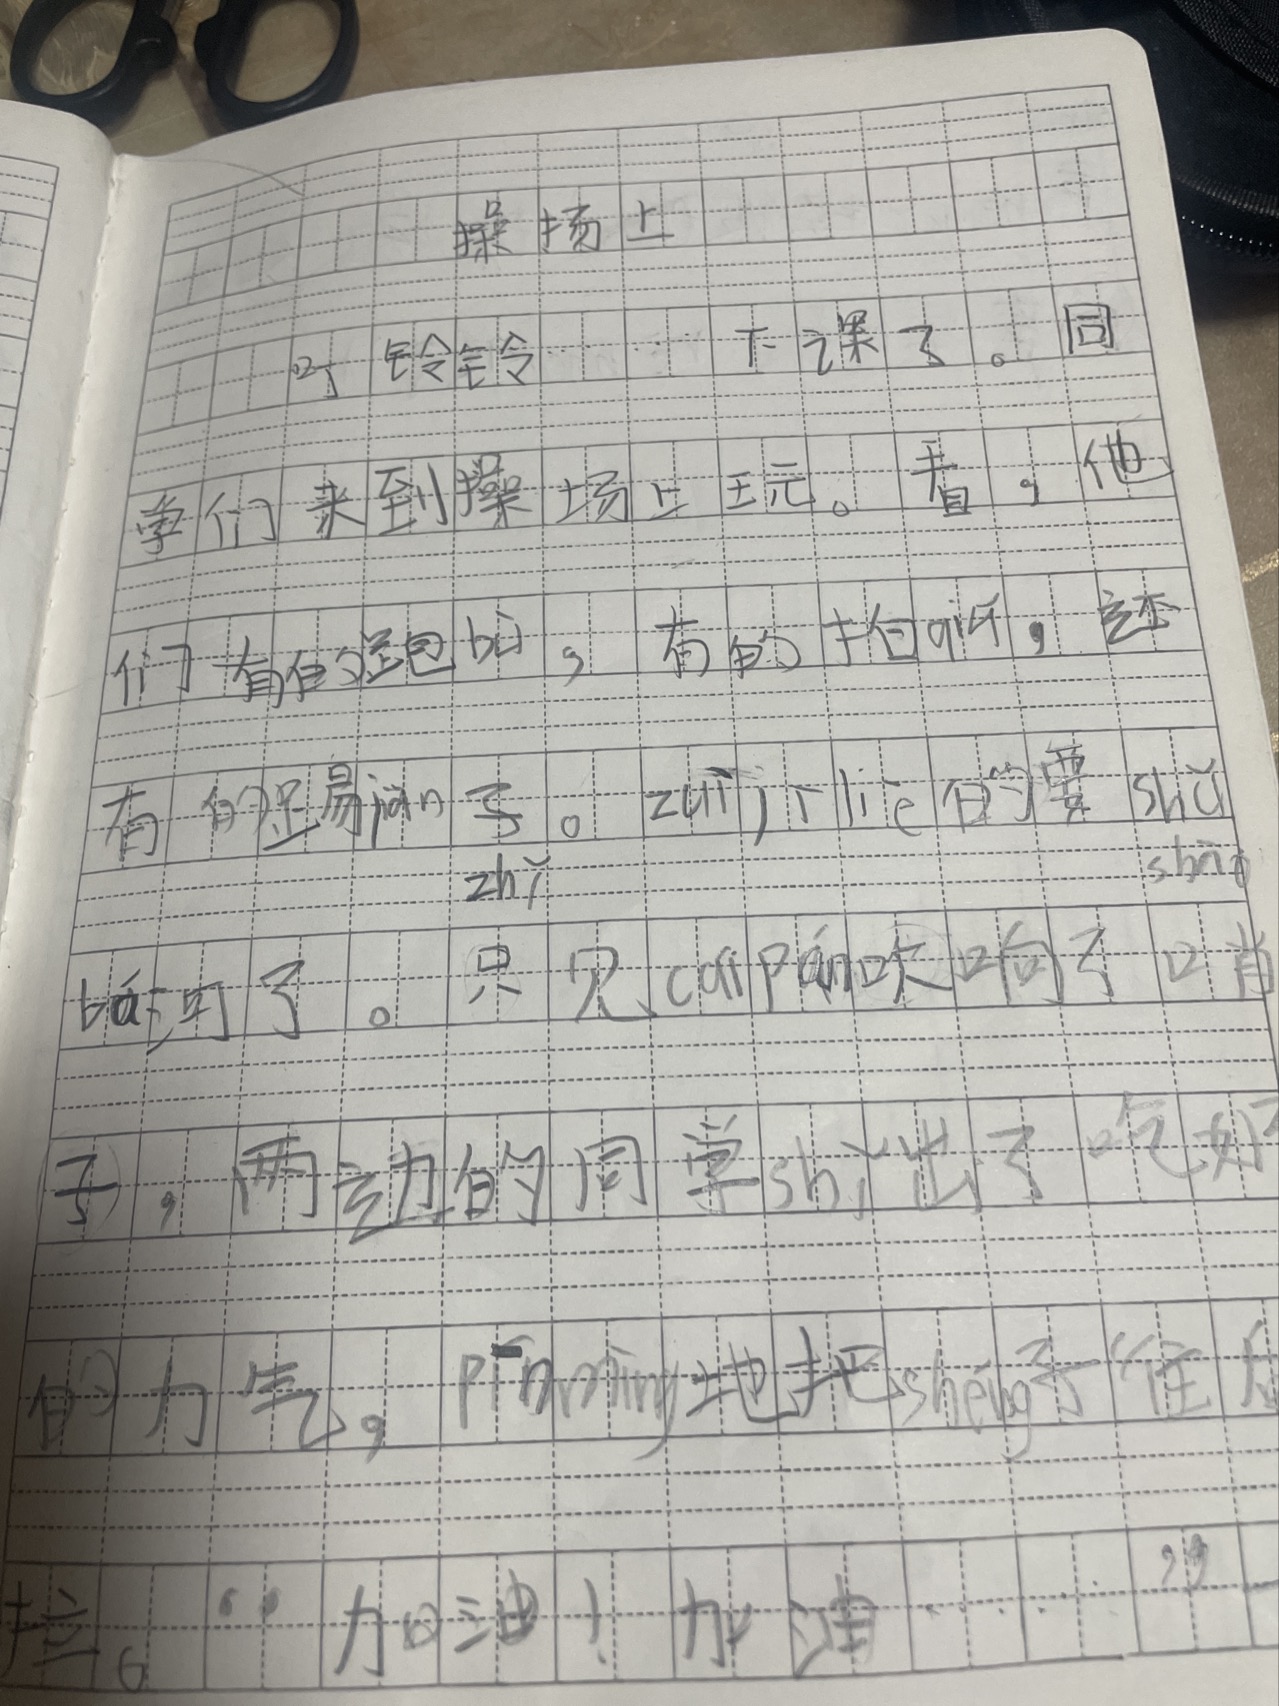 操场上
叮铃铃……下课了。同
学们来到操场上玩。看,他
们有的跑bù,有的拍qiú,还
有的踢jiàn子。zuì jī liè的要shǔ
zhǐ shào
bá河了。只见cái pàn吹响了口肖
子,两动的同学shǐ出了吃奶
的力气,pīn mìng地把shéng子往后
拉。“加油!加油……”